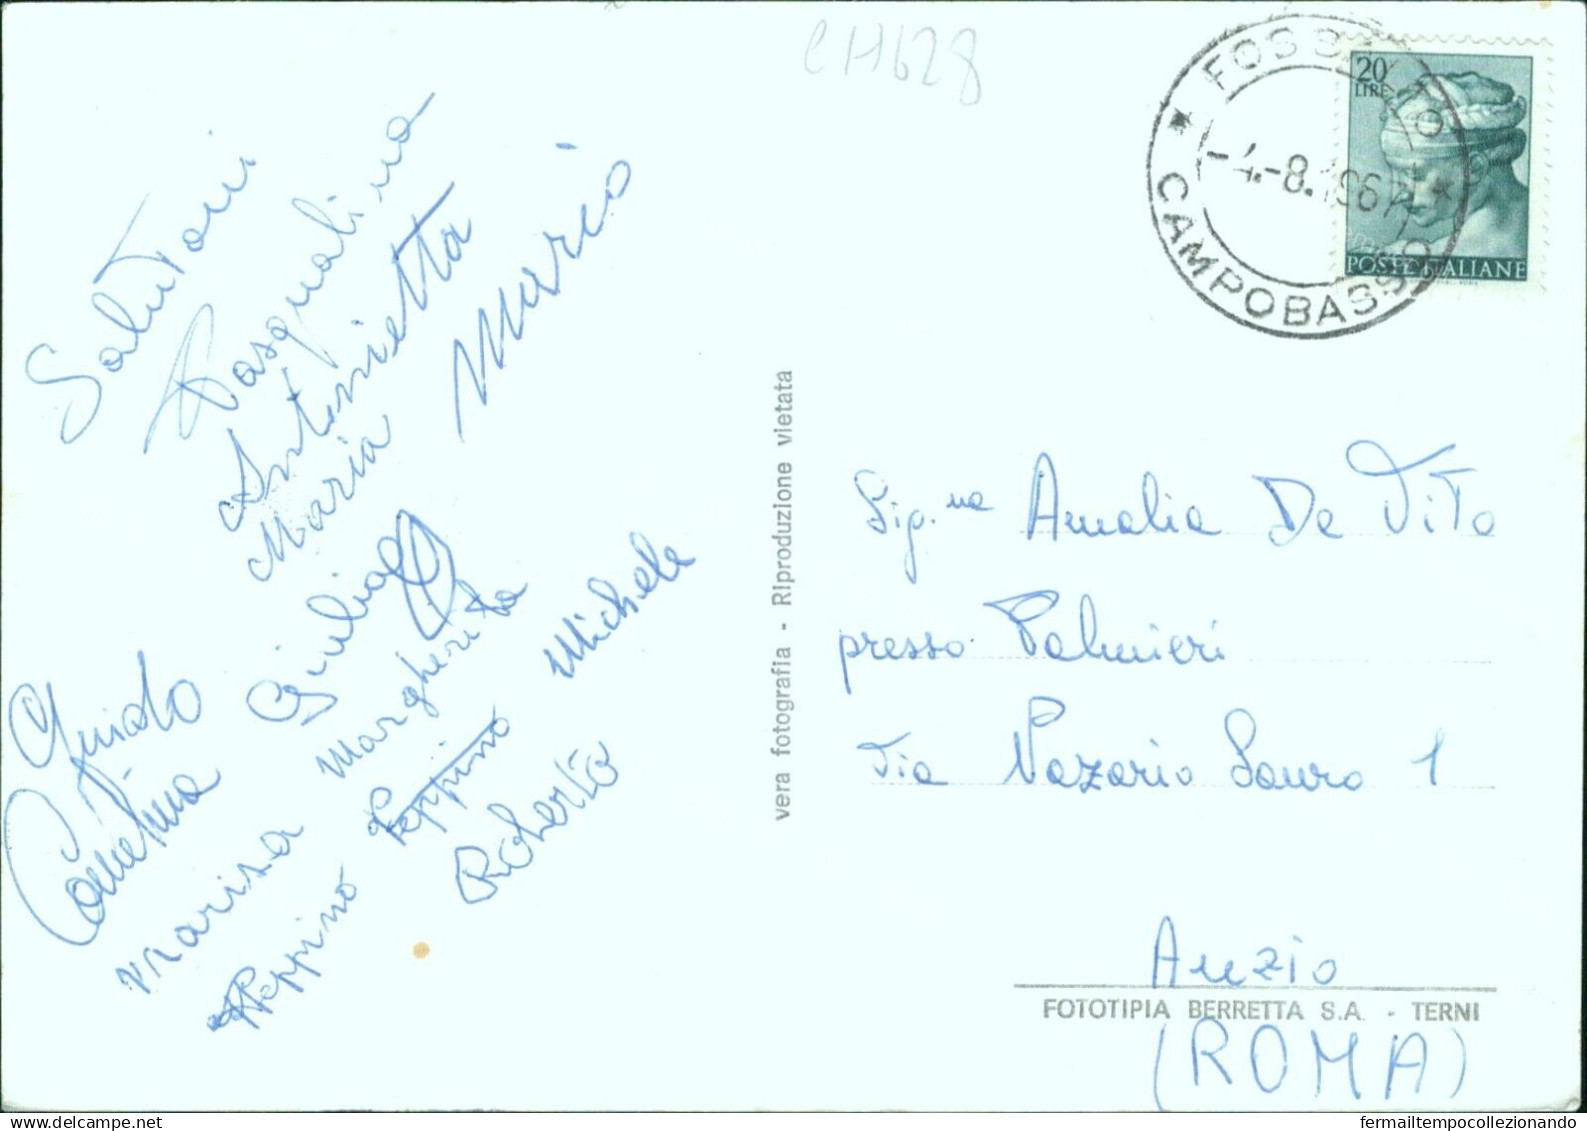 CH628
FOSSATO
* CAMPOBASSO *
-4.-8.1967
20
LIRE
POSTE ITALIANE
Salutoni
Pasqualino
Antonietta
Maria
Mario
Giulia
Guido
Marisa
Margherita
Michele
Peppino
Peppino
Roberto
vera fotografia - Riproduzione vietata
Sig.na Amalia De Vito
presso Palmieri
Via Nazario Sauro 1
Anzio
FOTOTIPIA BERRETTA S.A. - TERNI
(ROMA)
fermailtempocollezionando